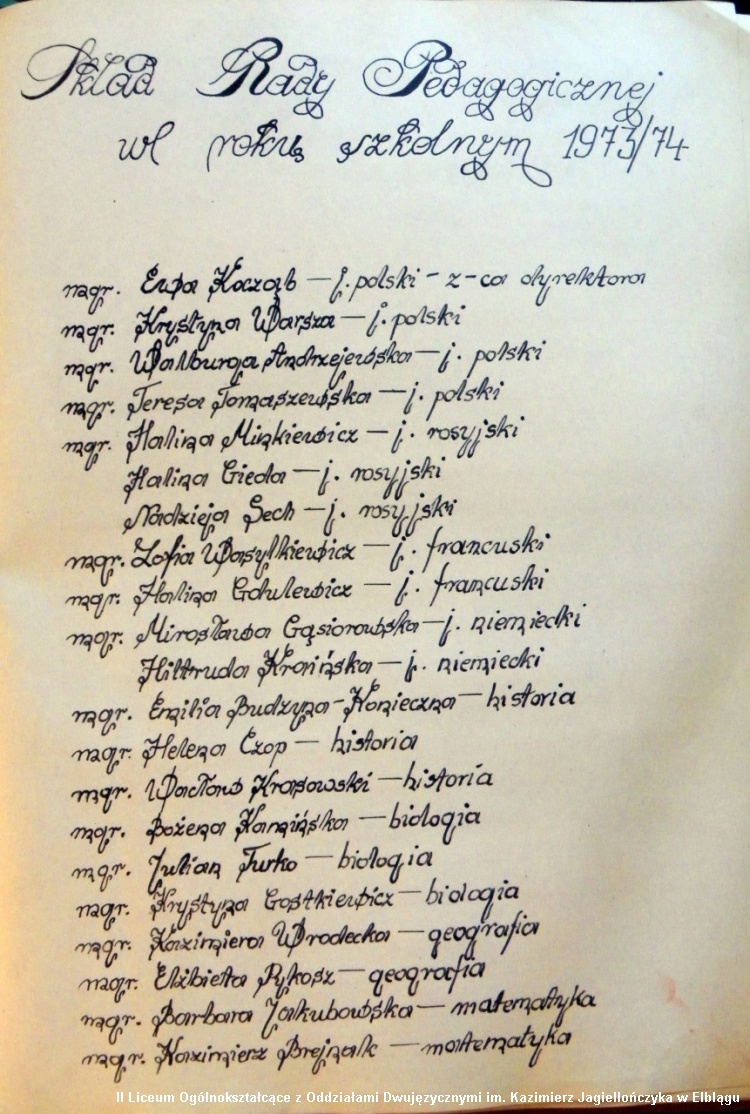 Skład Rady Pedagogicznej
w roku szkolnym 1973/74
mgr. Ewa Kocząb – j. polski – z-ca dyrektora
mgr. Krystyna Warsza – j. polski
mgr. Walburga Andrzejewska – j. polski
mgr. Teresa Tomaszewska – j. polski
mgr. Halina Minkiewicz – j. rosyjski
Halina Gieda – j. rosyjski
Nadzieja Sech – j. rosyjski
mgr. Zofia Wasylkiewicz – j. francuski
mgr. Halina Gdulewicz – j. francuski
mgr. Mirosława Gąsiorowska – j. niemiecki
Hiltruda Kraińska – j. niemiecki
mgr. Emilia Budzyna-Konieczna – historia
mgr. Helena Czop – historia
mgr. Wacław Krasowski – historia
mgr. Bożena Kamińska – biologia
mgr. Julian Turko – biologia
mgr. Krystyna Gostkiewicz – biologia
mgr. Kazimiera Wrodecka – geografia
mgr. Elżbieta Rykosz – geografia
mgr. Barbara Jakubowska – matematyka
mgr. Kazimierz Brejnak – matematyka
II Liceum Ogólnokształcące z Oddziałami Dwujęzycznymi im. Kazimierz Jagiellończyka w Elblągu